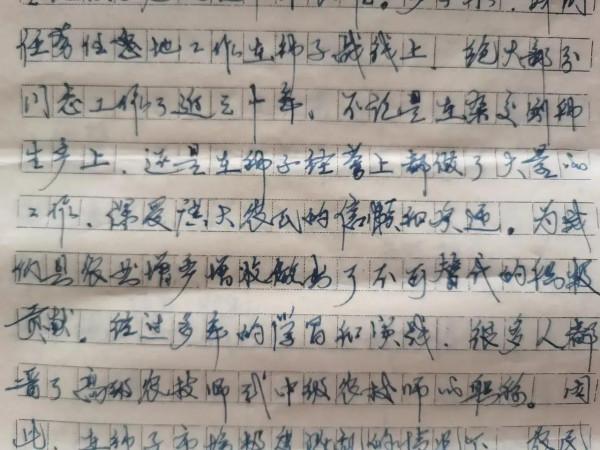 任劳任怨地工作在种子战线上,绝大部分
同志工作了近三十年。不论是在杂交制种
生产上,还是在种子经营上都做了大量的
工作,深受广大农民的信赖和欢迎。为我
们县农业增产增收做出了不可替代的积极
贡献。经过多年的学习和实践,很多人都
晋了高级农技师或中级农技师的职称。因
此,在种子市场极度 的情况下,农民